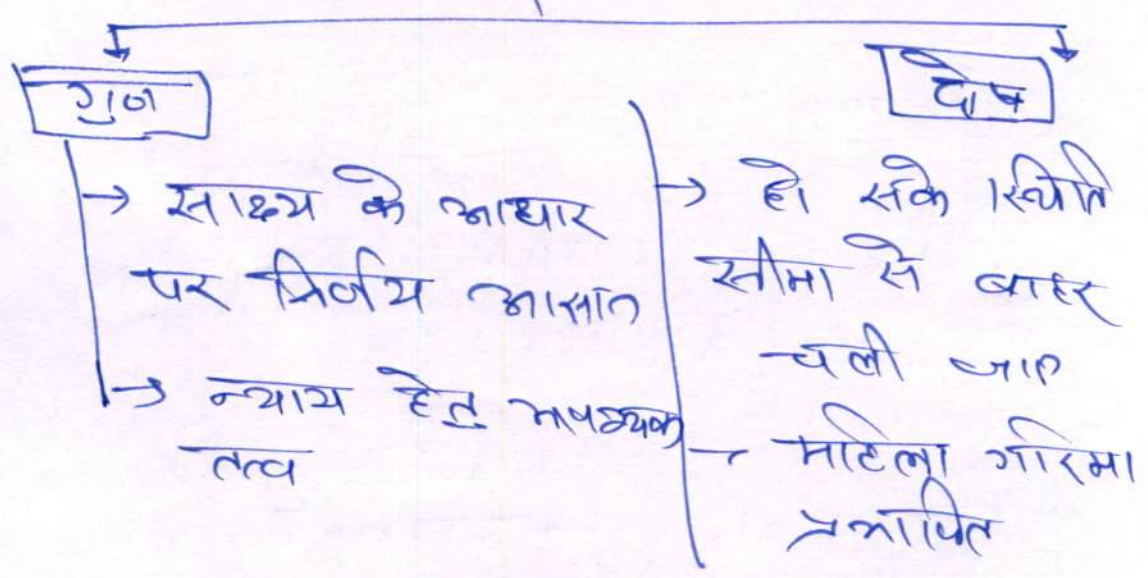 गुण
→ साक्ष्य के आधार
पर निर्णय आसान
→ न्याय हेतु आवश्यक
तत्व
दोष
→ हो सके स्थिति
सीमा से बाहर
चली जाए
→ महिला गरिमा
प्रभावित